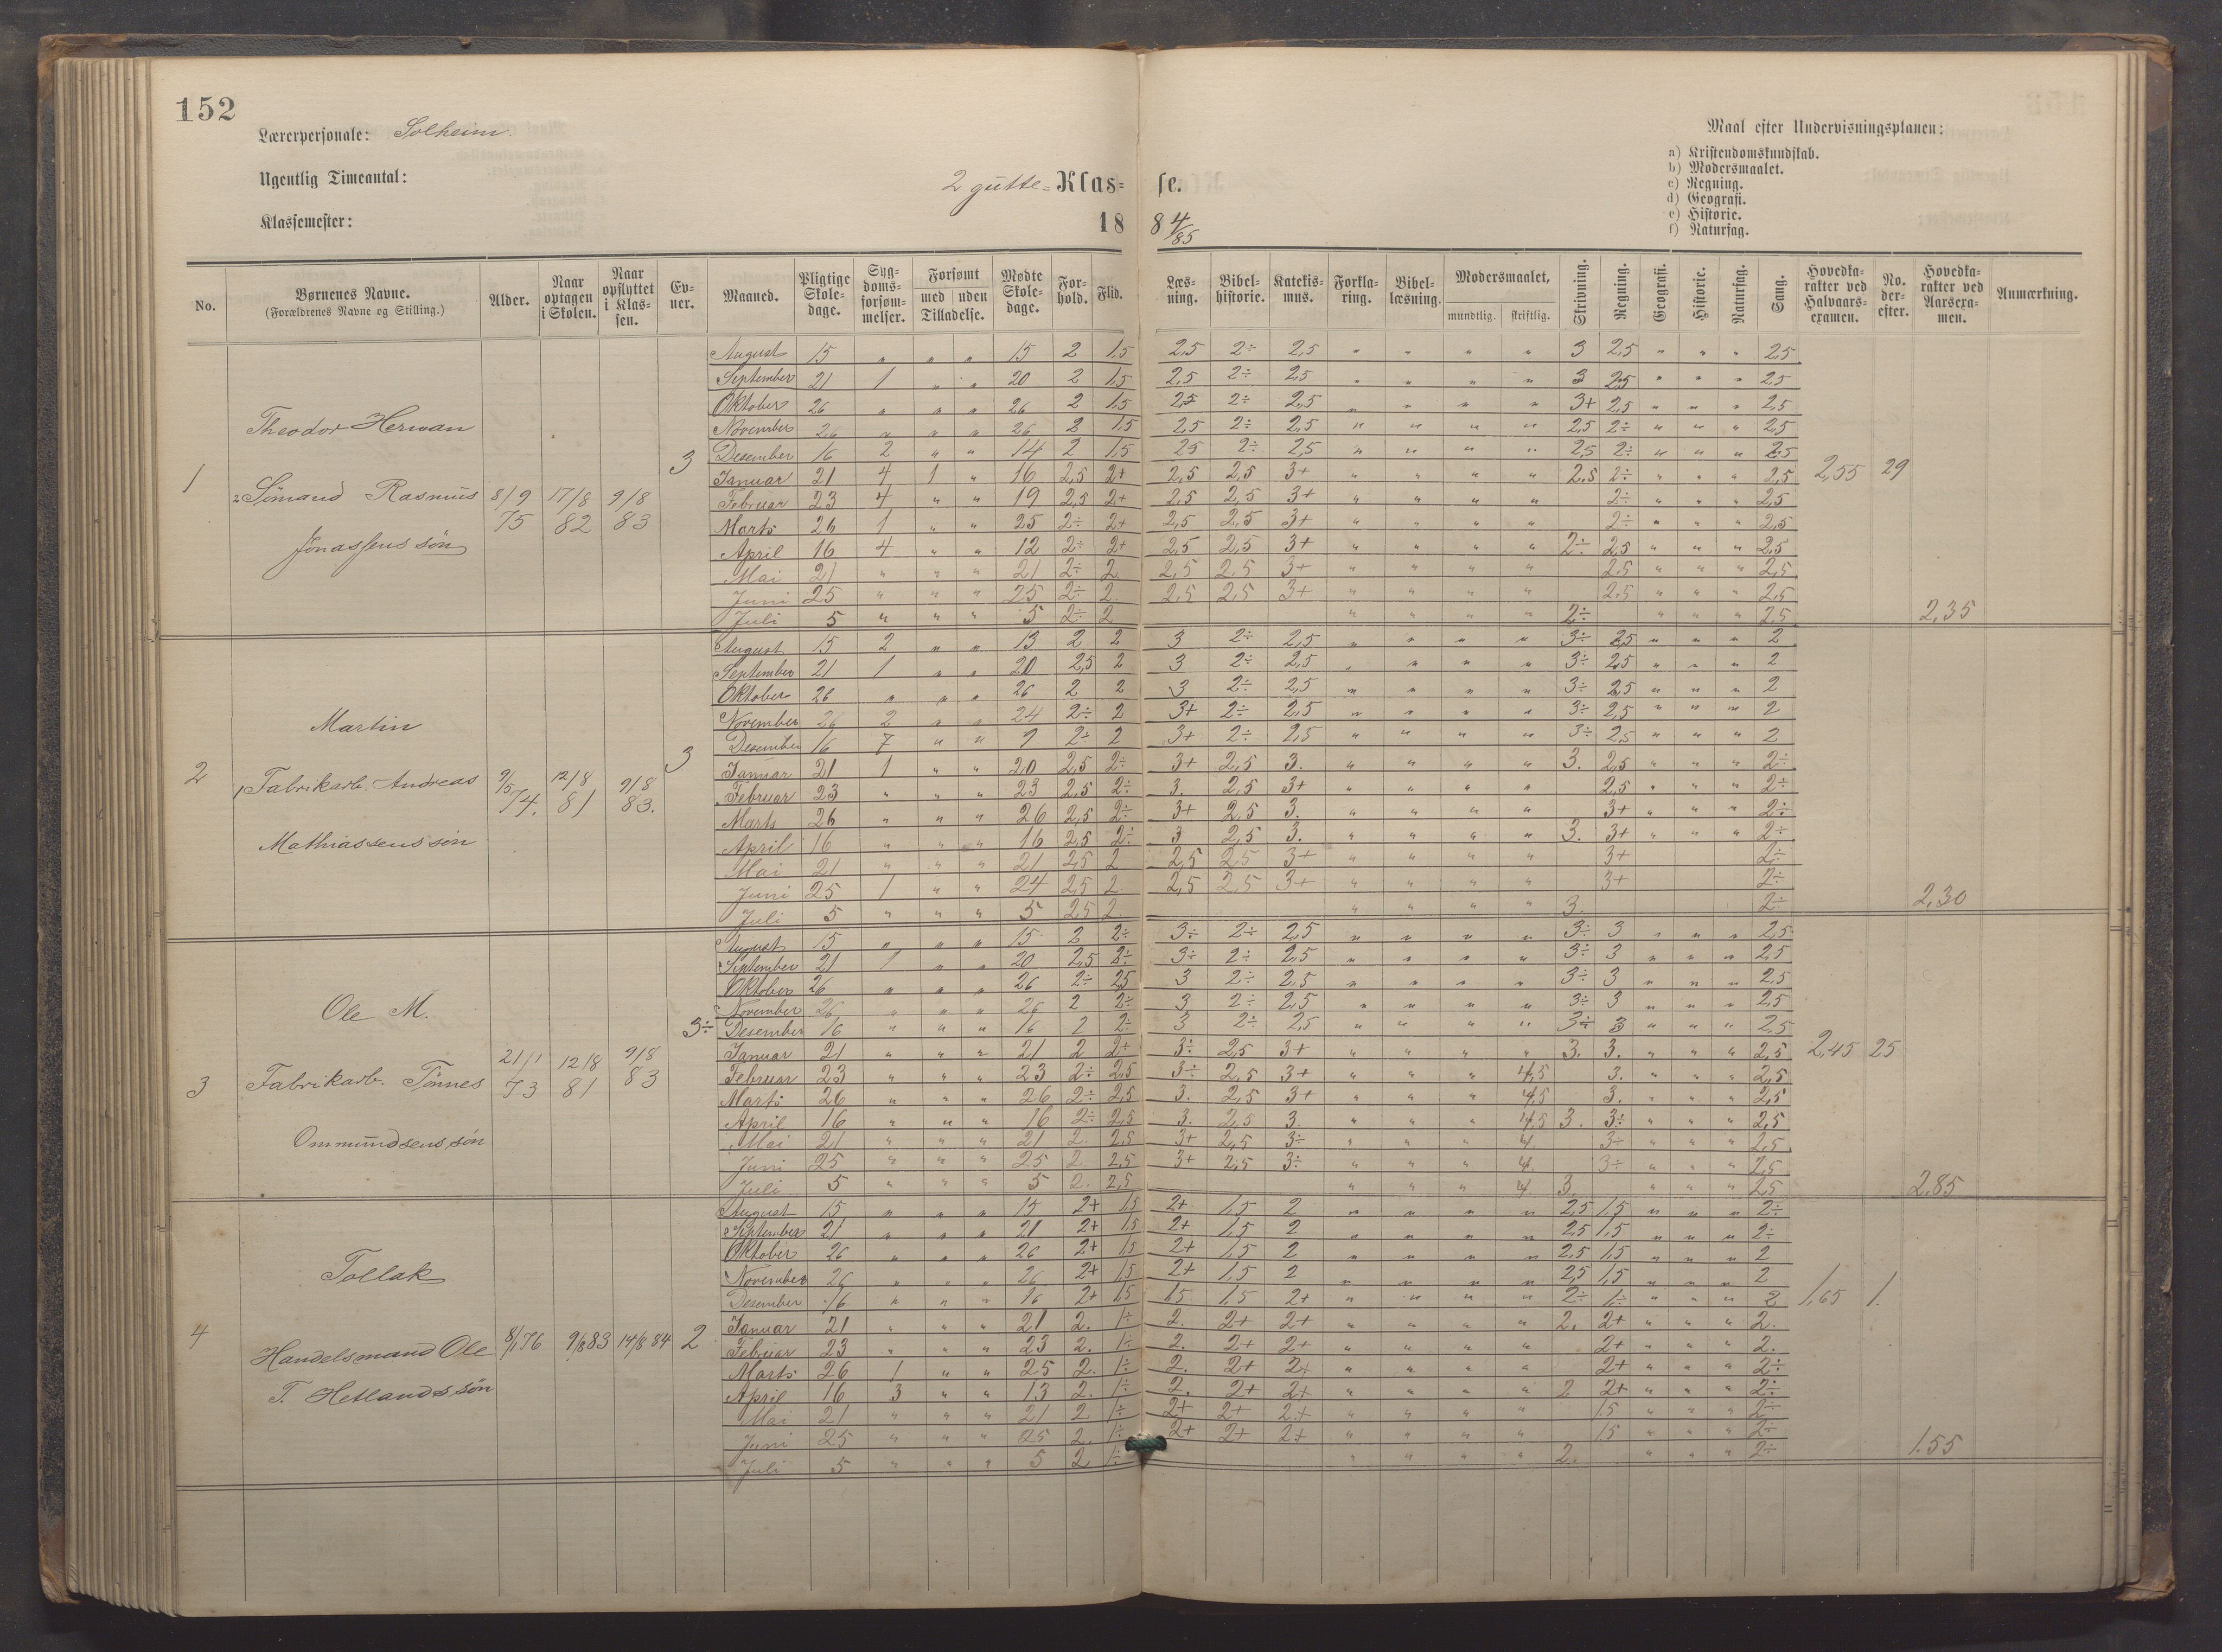 152
Lærerpersonale: Solheim.
Ugentlig Timeantal:
Klassemester:
2 gutte= Klas= se.
18 84/85
Maal efter Undervisningsplanen:
a) Kristendomskundskab.
b) Modersmaalet.
c) Regning.
d) Geografi.
e) Historie.
f) Naturfag.
No. Børnenes Navne. (Forældrenes Navne og Stilling.) Alder. Naar optagen i Skolen. Naar opflyttet i Klassen. Evner. Maaned. Pligtige Skoledage. Sygdomsforsømmelser. Forsømt med uden Tilladelse. Mødte Skoledage. Forhold. Flid. Læsning. Bibelhistorie. Katekismus. Forklaring. Bibellæsning. Modersmaalet, mundtlig. skriftlig. Skrivning. Regning. Geografi. Historie. Naturfag. Sang. Hovedkarakter ved Halvaarsexamen. No. derefter. Hovedkarakter ved Aarsexamen. Anmærkning.
1 Theodor Herman
Sömand Rasmus 8/9 75 17/8 82 9/8 83 3
Jonassens sön
August 15 " " " 15 2 1,5 2,5 2÷ 2,5 " " " " 3 2,5 " " " 2,5
September 21 1 " " 20 2 1,5 2,5 2÷ 2,5 " " " " 3 2,5 " " " 2,5
Oktober 26 " " " 26 2 1,5 2,5 2÷ 2,5 " " " " 3+ 2,5 " " " 2,5
November 26 " " " 26 2 1,5 2,5 2÷ 2,5 " " " " 2,5 2÷ " " " 2,5
Desember 16 2 " " 14 2 1,5 2,5 2÷ 2,5 " " " " 2,5 2÷ " " " 2,5
Januar 21 4 1 " 16 2,5 2+ 2,5 2,5 3+ " " " " 2,5 2÷ " " " 2,5 2,55 29
Februar 23 4 " " 19 2,5 2+ 2,5 2,5 3+ " " " " 2÷ " " " 2,5
Marts 26 1 " " 25 2÷ 2+ 2,5 2,5 3+ " " " " 2÷ " " " 2,5
April 16 4 " " 12 2÷ 2+ 2,5 2,5 3+ " " " " 2÷ 2,5 " " " 2,5
Mai 21 " " " 21 2÷ 2 2,5 2,5 3+ " " " " 2,5 " " " 2,5
Juni 25 " " " 25 2÷ 2. 2,5 2,5 3+ " " " " 2,5 " " " 2,5
Juli 5 " " " 5 2÷ 2 " " " " 2÷ " " " 2,5 2,35
2 Martin
Fabrikarb. Andreas 9/5 74. 12/8 81 9/8 83. 3
Mathiassens sön
August 15 2 " " 13 2 2 3 2÷ 2,5 " " " " 3÷ 2,5 " " " 2
September 21 1 " " 20 2,5 2 3 2÷ 2,5 " " " " 3÷ 2,5 " " " 2
Oktober 26 " " " 26 2 2 3 2÷ 2,5 " " " " 3÷ 2,5 " " " 2
November 26 2 " " 24 2÷ 2 3+ 2÷ 2,5 " " " " 3÷ 2,5 " " " 2
Desember 16 7 " " 9 2÷ 2 3+ 2÷ 2,5 " " " " 3÷ 2,5 " " " 2
Januar 21 1 " " 20 2,5 2÷ 3+ 2,5 3. " " " " 3. 2,5 " " " 2÷
Februar 23 " " " 23 2,5 2÷ 3. 2,5 3+ " " " " 2,5 " " " 2÷
Marts 26 " " " 26 2,5 2÷ 3+ 2,5 3. " " " " 3+ " " " 2÷
April 16 " " " 16 2,5 2÷ 3 2,5 3. " " " " 3. 3+ " " " 2÷
Mai 21 " " " 21 2,5 2 2,5 2,5 3+ " " " " 3+ 2÷
Juni 25 1 " " 24 2,5 2 2,5 2,5 3+ " " " " 3+ 2÷
Juli 5 " " " 5 2,5 2 " " " " 3. 2÷ 2,30
3 Ole M.
Fabrikarb. Tönnes 21/1 73 12/8 81 9/8 83 3÷
Ommundsens sön
August 15 " " " 15 2 2÷ 3÷ 2÷ 2,5 " " " " 3÷ 3 " " " 2,5
September 21 1 " " 20 2,5 2÷ 3÷ 2÷ 2,5 " " " " 3÷ 3 " " " 2,5
Oktober 26 " " " 26 2÷ 2,5 3 2÷ 2,5 " " " " 3÷ 3 " " " 2,5
November 26 " " " 26 2 2÷ 3 2÷ 2,5 " " " " 3÷ 3 " " " 2,5
Desember 16 " " " 16 2 2÷ 3 2÷ 2,5 " " " " 3÷ 3 " " " 2,5
Januar 21 " " " 21 2 2+ 3÷ 2,5 3+ " " " " 3. 3. " " " 2,5 2,45 25
Februar 23 " " " 23 2÷ 2,5 3÷ 2,5 3+ " " " 4,5 3. " " " 2,5
Marts 26 " " " 26 2÷ 2,5 3. 2,5 3+ " " " 4,5 3. " " " 2,5
April 16 " " " 16 2÷ 2,5 3. 2,5 3. " " " 4,5 3. 3÷ " " " 2,5
Mai 21 " " " 21 2. 2,5 3+ 2,5 3÷ " " " 4. 3÷ " " " 2,5
Juni 25 " " " 25 2. 2,5 3+ 2,5 3÷ " " " 4. 3÷ " " " 2,5
Juli 5 " " " 5 2. 2,5 " " " 4. 3. " " " 2,5 2,85
4 Tollak
Handelsmand Ole 8/1 76 9/8 83 14/8 84 2
T. Hetlands sön
August 15 " " " 15 2+ 1,5 2+ 1,5 2 " " " " 2,5 1,5 " " " 2÷
September 21 " " " 21 2+ 1,5 2+ 1,5 2 " " " " 2,5 1,5 " " " 2÷
Oktober 26 " " " 26 2+ 1,5 2+ 1,5 2 " " " " 2,5 1,5 " " " 2
November 26 " " " 26 2+ 1,5 2+ 1,5 2 " " " " 2,5 1,5 " " " 2
Desember 16 " " " 16 2+ 1,5 1,5 1,5 2+ " " " " 2÷ 1÷ " " " 2 1,65 1.
Januar 21 " " " 21 2. 1÷ 2. 2+ 2+ " " " " 2. 2+ " " " 2.
Februar 23 " " " 23 2. 1÷ 2. 2+ 2+ " " " " 2+ " " " 2.
Marts 26 1 " " 25 2. 1÷ 2. 2+ 2+ " " " " 2+ " " " 2÷
April 16 3 " " 13 2. 1÷ 2. 2+ 2+ " " " " 2 2+ " " " 2÷
Mai 21 " " " 21 2 1÷ 2+ 2+ 2+ " " " " 1,5 " " " 2÷
Juni 25 " " " 25 2. 1÷ 2+ 2+ 2+ " " " " 1,5 " " " 2÷
Juli 5 " " " 5 2 1÷ " " " " 2. " " " 2÷ 1.55